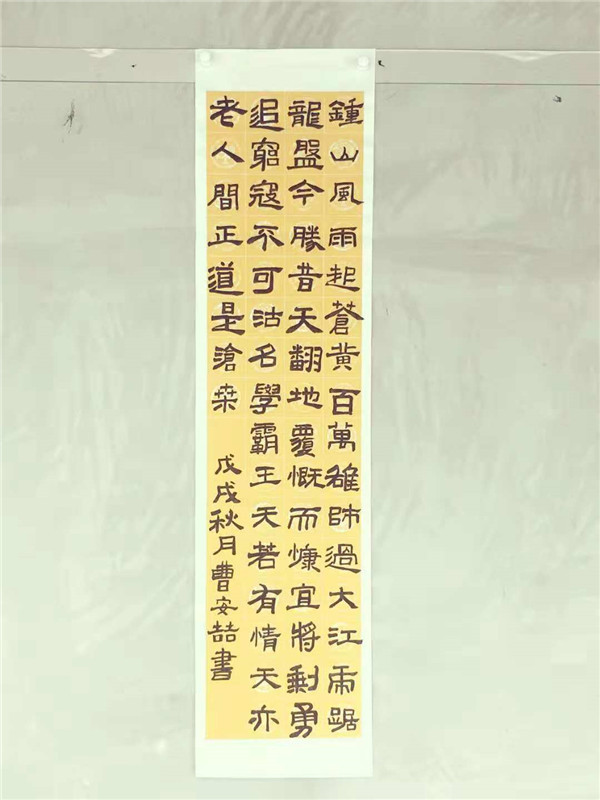 鍾山風雨起蒼黄百萬雄師過大江虎踞
龍盤今勝昔天翻地覆慨而慷宜將剩勇
追窮寇不可沽名學霸王天若有情天亦
老人間正道是滄桑
戊戌秋月曹安喆書